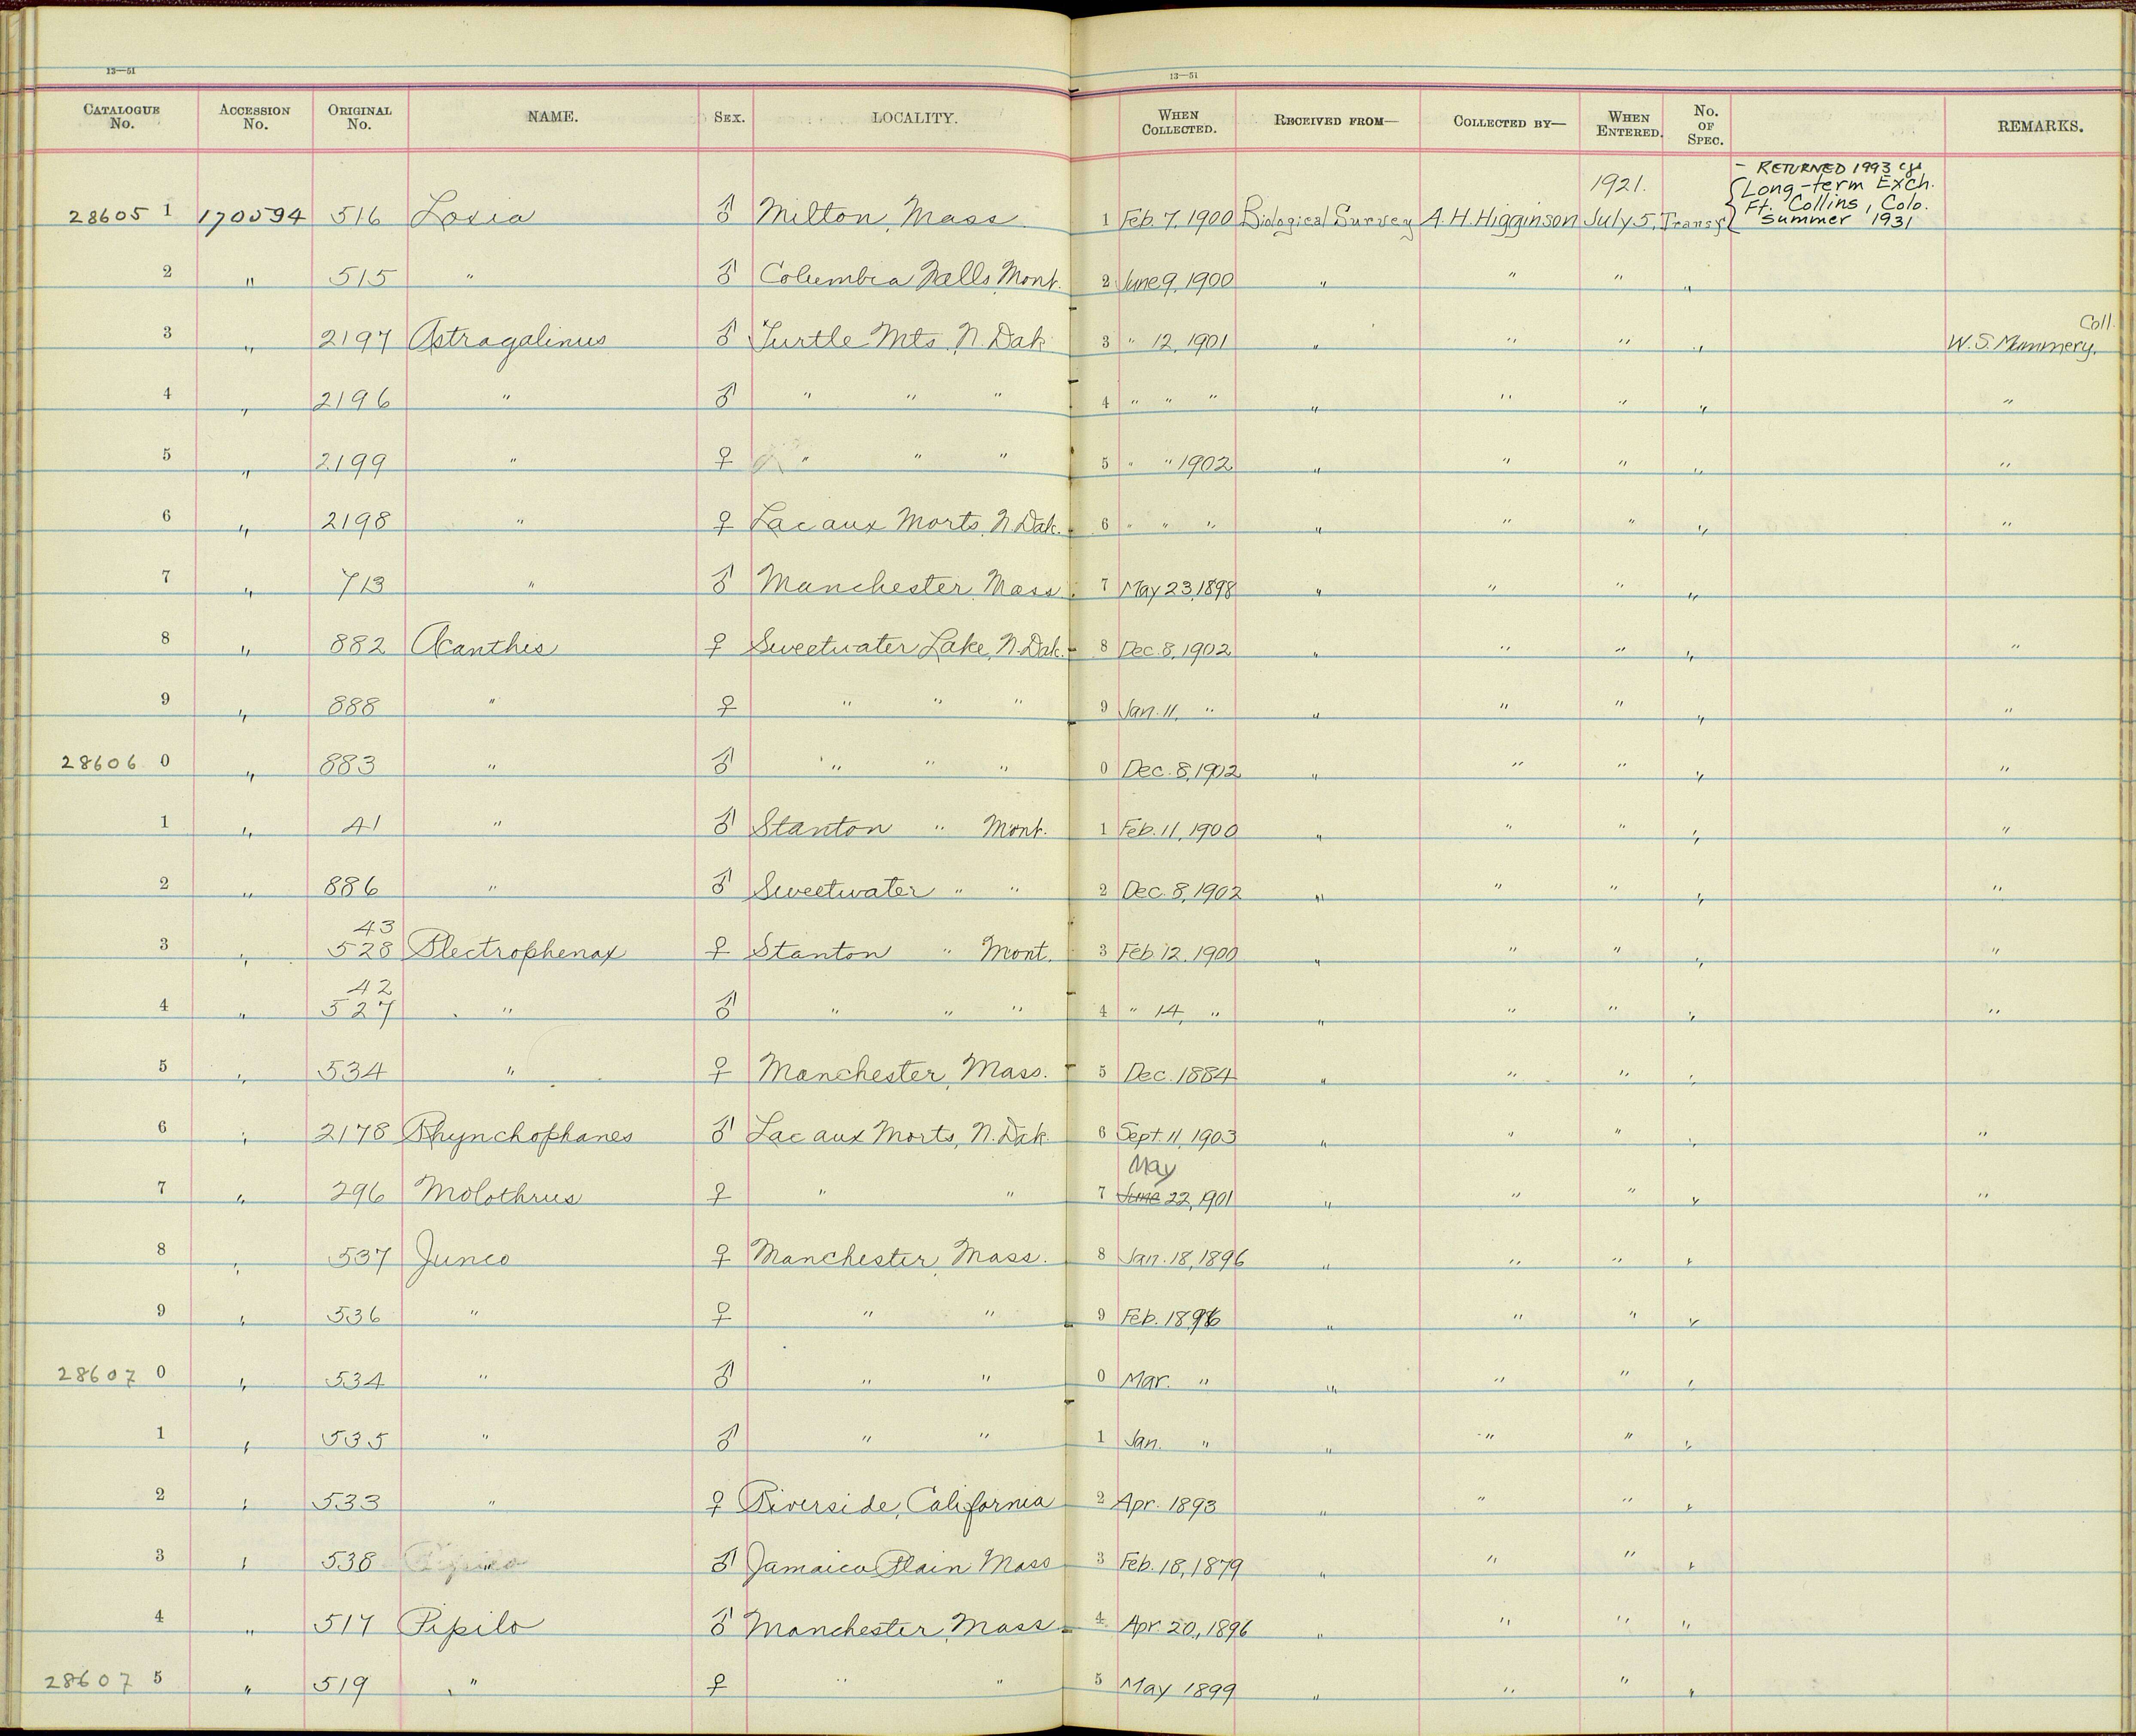 13—51
13—51
CATALOGUE No. ACCESSION No. ORIGINAL No. NAME. SEX. LOCALITY. WHEN COLLECTED. RECEIVED FROM— COLLECTED BY— WHEN ENTERED. No. OF SPEC. REMARKS.
— RETURNED 1993
1921. Long-term Exch.
Ft. Collins, Colo.
28605 1 170594 516 Loxia ♂ Milton, Mass. 1 Feb. 7, 1900 Biological Survey A. H. Higginson July 5, Transf. Summer 1931
2 " 515 " ♂ Columbia Falls Mont. 2 June 9, 1900 " " " "
Coll.
3 " 2197 Astragalinus ♂ Turtle Mts. N. Dak. 3 " 12, 1901 " " " " W. S. Mummery.
4 " 2196 " ♂ " " " 4 " " " " " " " "
5 " 2199 " ♀ " " " 5 " " 1902 " " " " "
6 " 2198 " ♀ Lac aux Morts, N. Dak. 6 " " " " " " " "
7 " 713 " ♂ Manchester, Mass. 7 May 23, 1898 " " " "
8 " 882 Acanthis ♀ Sweetwater Lake, N. Dak. 8 Dec. 8, 1902 " " " " "
9 " 888 " ♀ " " " 9 Jan. 11, " " " " " "
28606 0 " 883 " ♂ " " " 0 Dec. 8, 1902 " " " " "
1 " 41 " ♂ Stanton " Mont. 1 Feb. 11, 1900 " " " " "
2 " 886 " ♂ Sweetwater " " 2 Dec. 8, 1902 " " " " "
43
3 " 528 Plectrophenax ♀ Stanton " Mont. 3 Feb. 12, 1900 " " " " "
42
4 " 527 " ♂ " " " 4 " 14, " " " " " "
5 " 534 " ♀ Manchester, Mass. 5 Dec. 1884 " " " "
6 " 2178 Rhynchophanes ♂ Lac aux Morts, N. Dak. 6 Sept. 11, 1903 " " " " "
May
7 " 296 Molothrus ♀ " " 7 June 22, 1901 " " " " "
8 " 537 Junco ♀ Manchester, Mass. 8 Jan. 18, 1896 " " " "
9 " 536 " ♀ " " 9 Feb. 1896 " " " "
28607 0 " 534 " ♂ " " 0 Mar. " " " " "
1 " 535 " ♂ " " 1 Jan. " " " " "
2 " 533 " ♀ Riverside, California 2 Apr. 1893 " " " "
3 " 538 " ♂ Jamaica Plain Mass 3 Feb. 18, 1879 " " " "
4 " 517 Pipilo ♂ Manchester, Mass. 4 Apr. 20, 1896 " " " "
28607 5 " 519 " ♀ " " 5 May 1899 " " " "